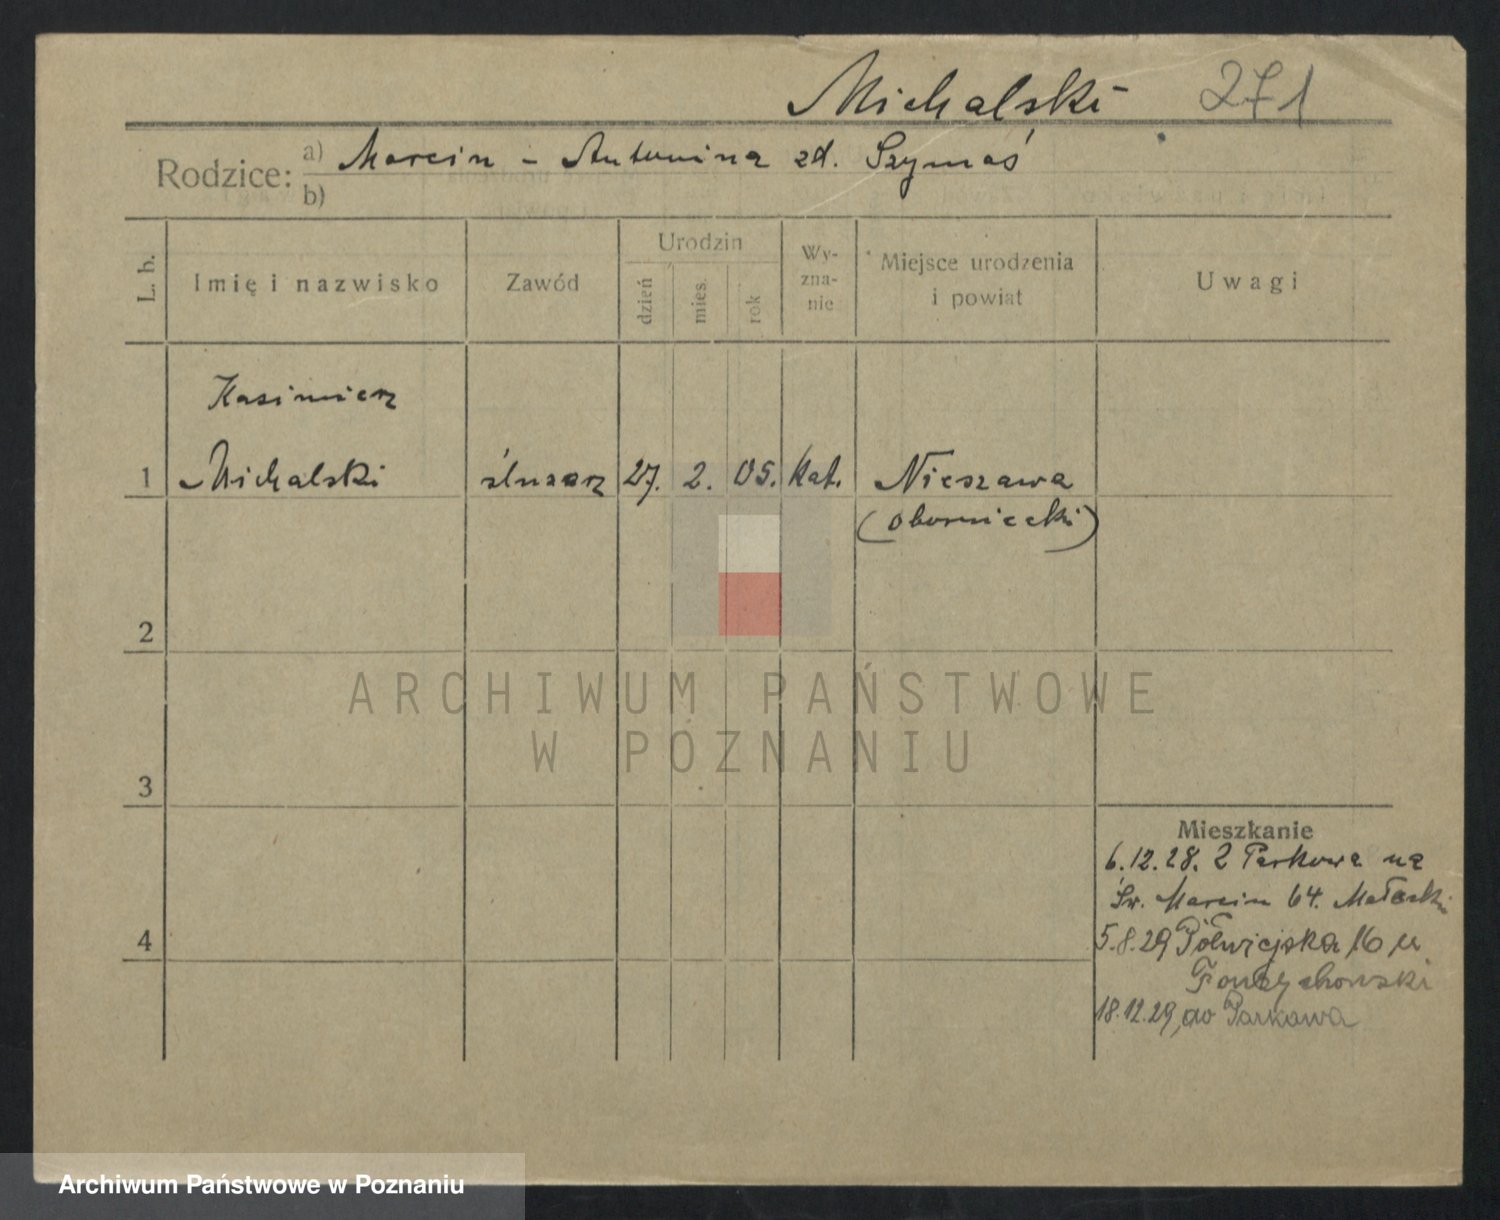 Michalski 271
Rodzice: a) Marcin - Antonina zd. Szymaś
b)
L. b. Imię i nazwisko Zawód Urodzin dzień mies. rok Wy-zna-nie Miejsce urodzenia i powiat Uwagi
Kasimierz
1 Michalski ślusarz 27. 2. 05. kat. Nieszawa
(obornicki)
2
ARCHIWUM PAŃSTWOWE
W POZNANIU
3
Mieszkanie
6.12.28. Z Parkowa na
Św. Marcin 64. Małecki
4
5.8.29 Półwiejska 16 u
18.12.29, do Parkowa
Archiwum Państwowe w Poznaniu